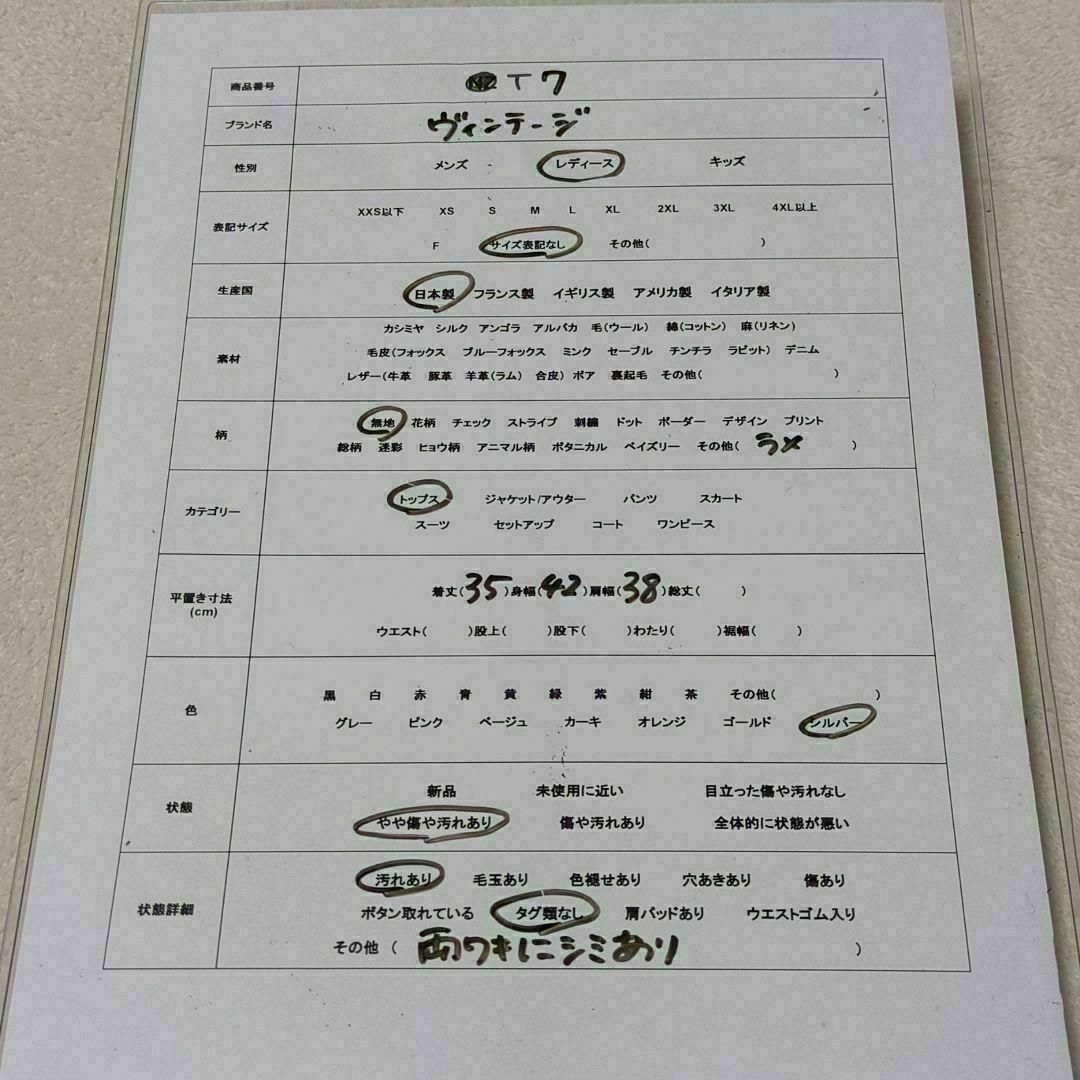 商品番号 T7
ブランド名 ヴィンテージ
性別 メンズ レディース キッズ
表記サイズ XXS以下 XS S M L XL 2XL 3XL 4XL以上
F サイズ表記なし その他( )
生産国 日本製 フランス製 イギリス製 アメリカ製 イタリア製
素材 カシミヤ シルク アンゴラ アルパカ 毛(ウール) 綿(コットン) 麻(リネン)
毛皮(フォックス ブルーフォックス ミンク セーブル チンチラ ラビット) デニム
レザー(牛革 豚革 羊革(ラム) 合皮) ボア 裏起毛 その他( )
柄 無地 花柄 チェック ストライプ 刺繍 ドット ボーダー デザイン プリント
総柄 迷彩 ヒョウ柄 アニマル柄 ボタニカル ペイズリー その他( ラメ )
カテゴリー トップス ジャケット/アウター パンツ スカート
スーツ セットアップ コート ワンピース
平置き寸法(cm) 着丈(35)身幅(42)肩幅(38)総丈( )
ウエスト( )股上( )股下( )わたり( )裾幅( )
色 黒 白 赤 青 黄 緑 紫 紺 茶 その他( )
グレー ピンク ベージュ カーキ オレンジ ゴールド シルバー
状態 新品 未使用に近い 目立った傷や汚れなし
やや傷や汚れあり 傷や汚れあり 全体的に状態が悪い
状態詳細 汚れあり 毛玉あり 色褪せあり 穴あきあり 傷あり
ボタン取れている タグ類なし 肩パッドあり ウエストゴム入り
その他 ( 両ワキにシミあり )